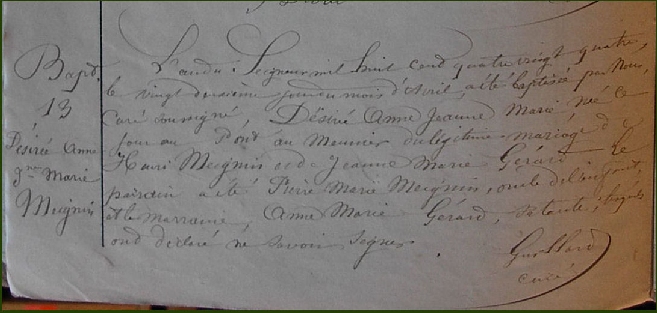 Bapt.
13
Désirée Anne
Jne Marie
Meignin
L'an du Seigneur mil huit cent quatre vingt quatre,
le vingt deuxième jour du mois d'Avril, a été baptisée par Nous,
Curé soussigné, Désirée Anne Jeanne Marie née ce
jour au Pont au Meunier du légitime mariage d
Henri Meignin et de Jeanne Marie Gérard Le
parrain a été Pierre Marie Meignin, oncle de l'enfant,
et la marraine, Anne Marie Gérard, sa tante, lesquels
ont déclaré ne savoir signer.
curé